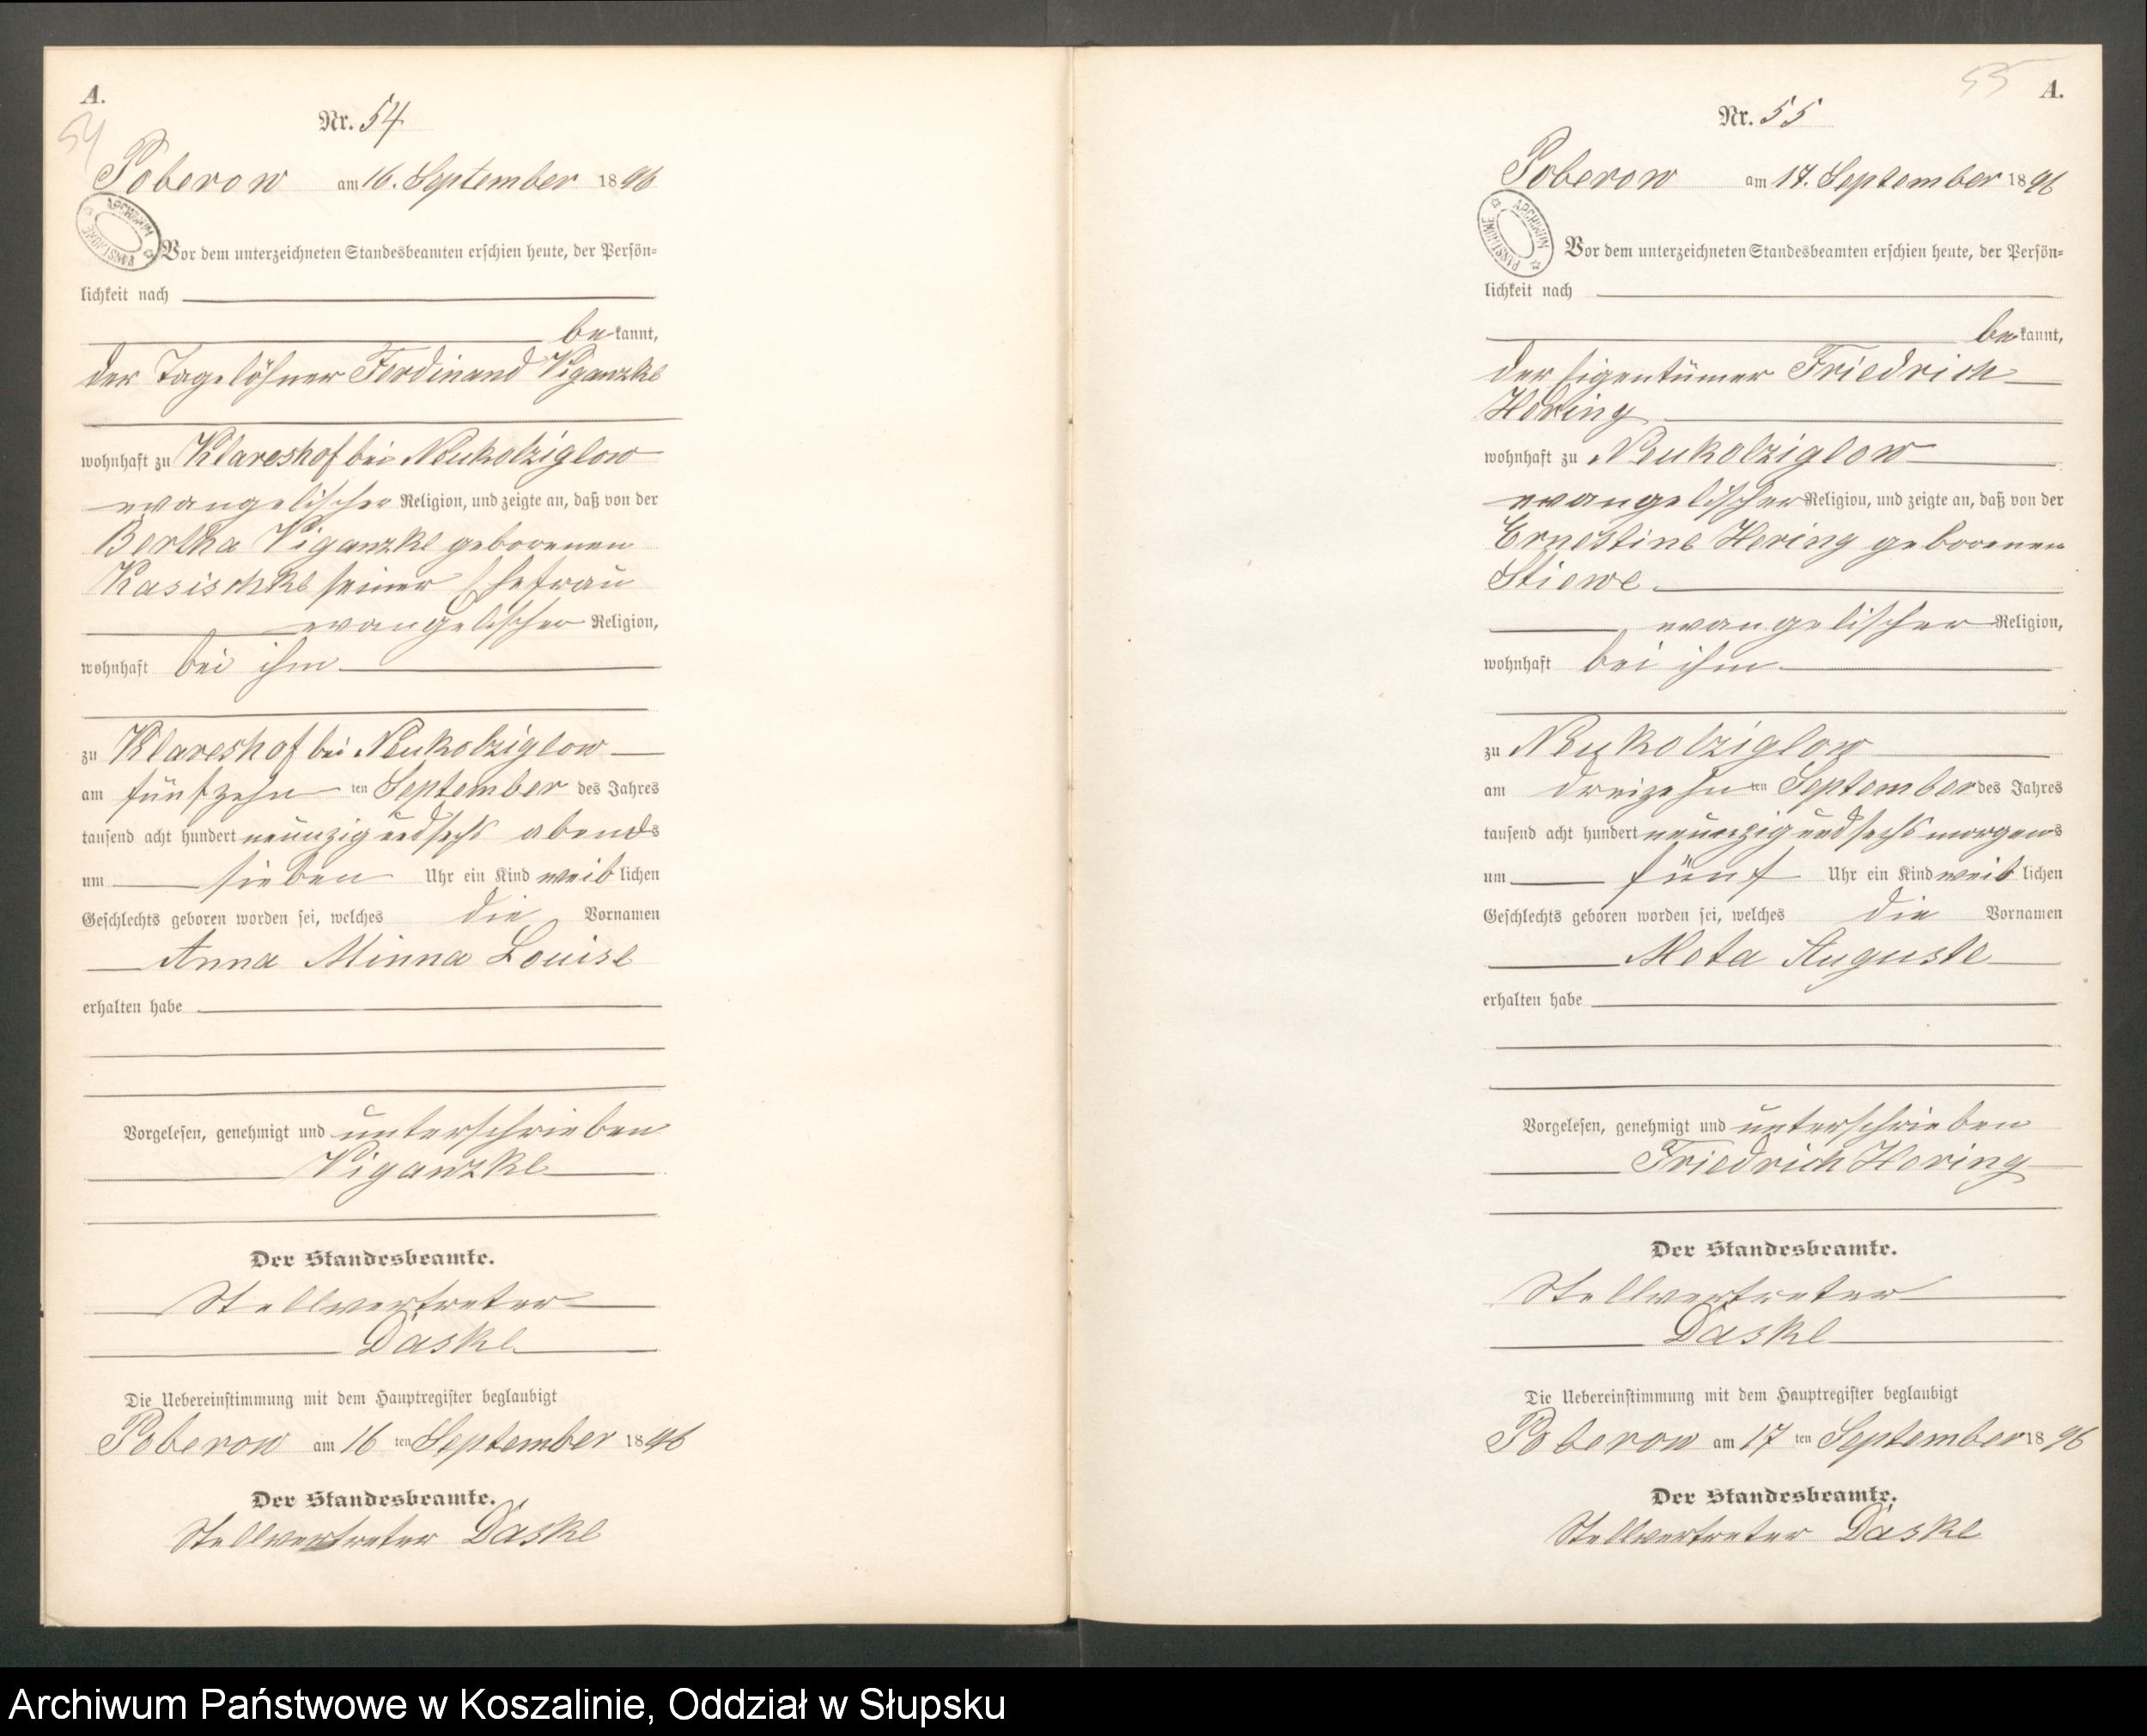 A.
54
Nr. 54
Poberow am 16. September 1896
ARCHIWUM PAŃSTWOWE
Vor dem unterzeichneten Standesbeamten erschien heute, der Persön=
lichkeit nach
bekannt,
der Tagelöhner Ferdinand Viganzke
wohnhaft zu Klareshof bei Neukolziglow
evangelischer Religion, und zeigte an, daß von der
Bertha Viganzke geborenen
Kasischke seiner Ehefrau
evangelischer Religion,
wohnhaft bei ihm
zu Klareshof bei Neukolziglow
am fünfzehnten September des Jahres
tausend acht hundert neunzig und sechs abends
um sieben Uhr ein Kind weiblichen
Geschlechts geboren worden sei, welches die Vornamen
Anna Minna Louise
erhalten habe
Vorgelesen, genehmigt und unterschrieben
Viganzke
Der Standesbeamte.
Stellvertreter
Daske
Die Uebereinstimmung mit dem Hauptregister beglaubigt
Poberow am 16ten September 1896
Der Standesbeamte.
Stellvertreter Daske
55
A.
Nr. 55
Poberow am 17. September 1896
ARCHIWUM PAŃSTWOWE
Vor dem unterzeichneten Standesbeamten erschien heute, der Persön=
lichkeit nach
bekannt,
der Eigentümer Friedrich
Hering
wohnhaft zu Neukolziglow
evangelischer Religion, und zeigte an, daß von der
Ernestine Hering geborenen
Stiewe
evangelischer Religion,
wohnhaft bei ihm
zu Neukolziglow
am dreizehnten September des Jahres
tausend acht hundert neunzig und sechs morgens
um fünf Uhr ein Kind weiblichen
Geschlechts geboren worden sei, welches die Vornamen
Meta Auguste
erhalten habe
Vorgelesen, genehmigt und unterschrieben
Friedrich Hering
Der Standesbeamte.
Stellvertreter
Daske
Die Uebereinstimmung mit dem Hauptregister beglaubigt
Poberow am 17ten September 1896
Der Standesbeamte.
Stellvertreter Daske
Archiwum Państwowe w Koszalinie, Oddział w Słupsku